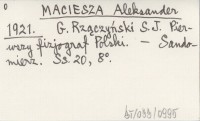 0
MACIESZA Aleksander
1921. G. Rzączyński S.J. Pier-
wszy fizjograf Polski. — Sando-
mierz. Ss. 20, 8°.
bJ/099/0995